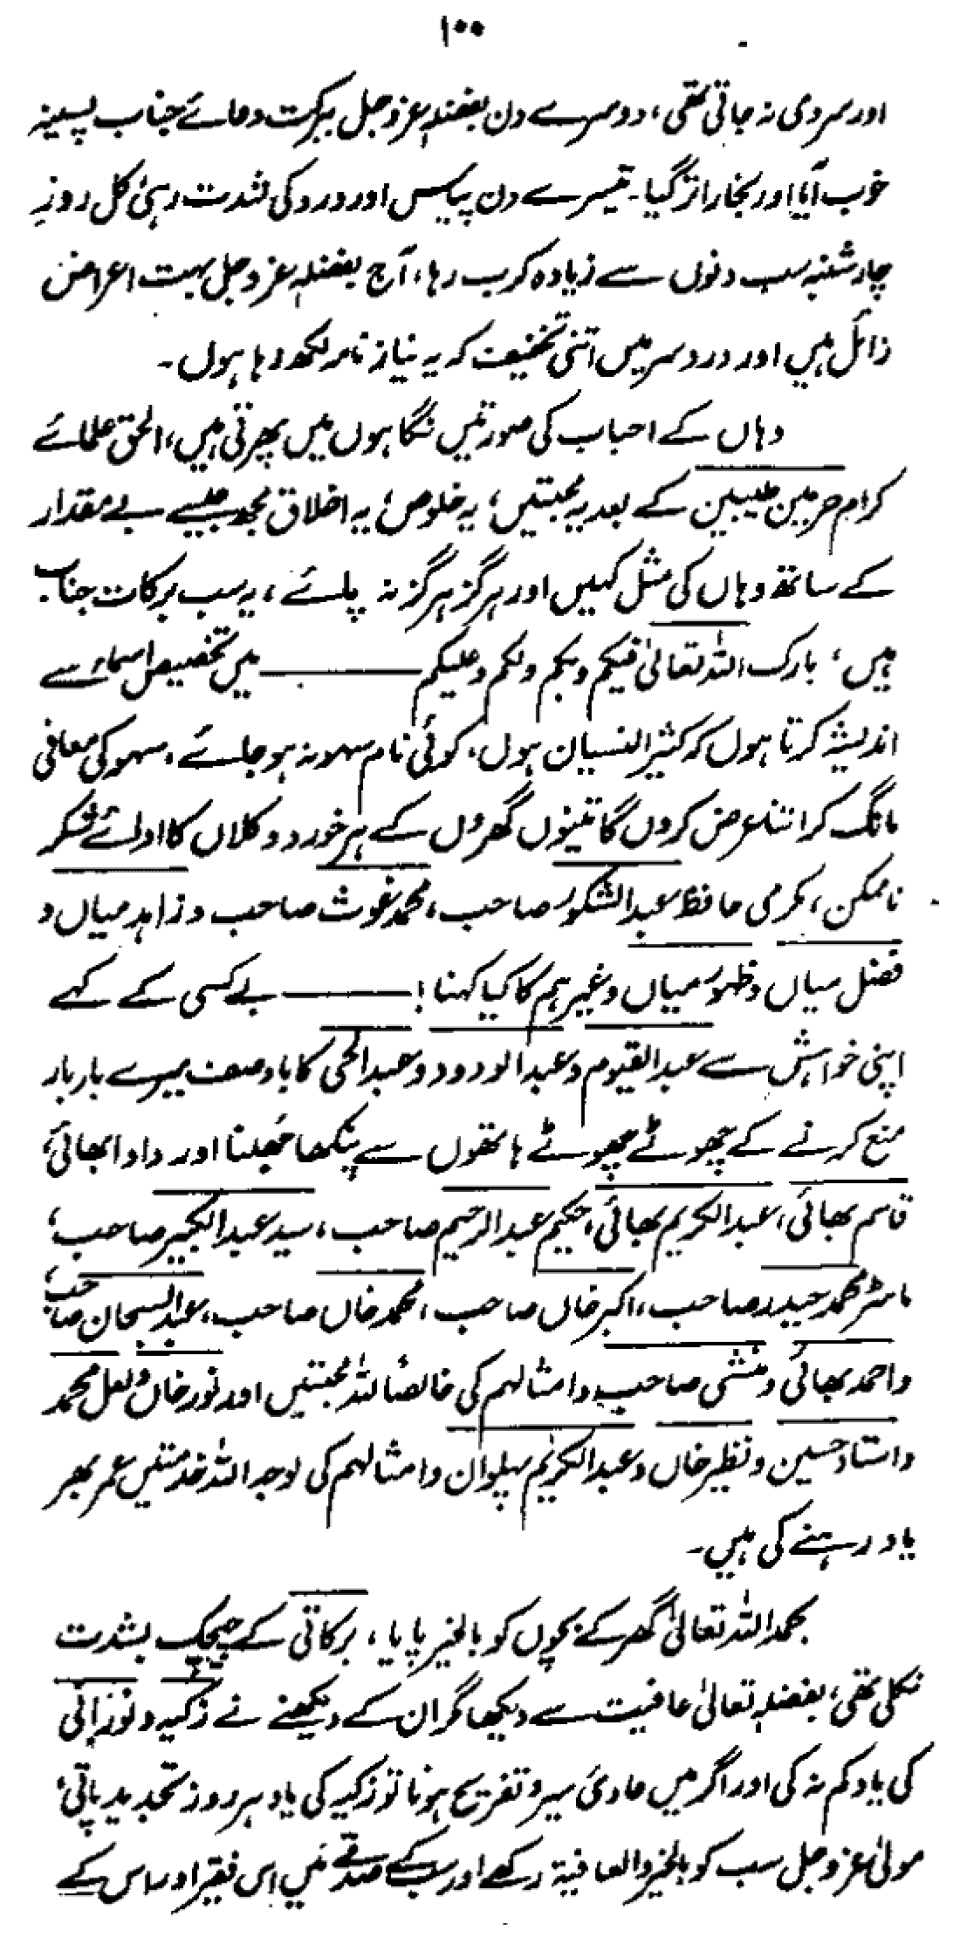 ۱۰۰
اور سردی نہ جاتی تھی، دوسرے دن بفضلہٖ عزوجل برکت دعائے جناب پسینہ
خوب آیا اور بخار اتر گیا۔ تیسرے دن پیاس اور درد کی شدت رہی، کل روزِ
چارشنبہ سب دنوں سے زیادہ کرب رہا، آج بفضلہٖ عزوجل بہت اعراض
زائل ہیں اور درد سر میں اتنی تخفیف کہ یہ نیاز نامہ لکھ رہا ہوں۔
وہاں کے احباب کی صورتیں نگاہوں میں پھرتی ہیں، الحق علمائے
کرام حرمین طیبین کے بعد یہ محبتیں، یہ خلوص، یہ اخلاق مجھ جیسے بے مقدار
کے ساتھ وہاں کی مثل کہیں اور ہرگز ہرگز نہ پائے، یہ سب برکات جناب
ہیں، بارک اللہ تعالیٰ فیکم وبکم ولکم وعلیکم ——— میں تخصیص اسماء سے
اندیشہ کرتا ہوں کہ کثیر النسیان ہوں، کوئی نام سہو نہ ہو جائے، سہو کی معافی
مانگ کر اتنا عرض کروں گا تینوں گھروں کے ہر خورد و کلاں کا ادائے شکر
ناممکن، مکرمی حافظ عبدالشکور صاحب، محمد غوث صاحب و زاہد میاں و
فضل میاں و ظہور میاں وغیرہم کا کیا کہنا! ——— بے کسی کے کہے
اپنی خواہش سے عبدالقیوم و عبدالودود و عبدالحی کا باوصف میرے بار بار
منع کرنے کے چھوٹے چھوٹے ہاتھوں سے پنکھا جھلنا اور دادا بھائی،
قاسم بھائی، عبدالکریم بھائی، حکیم عبدالرحیم صاحب، سید عبدالکبیر صاحب،
ماسٹر محمد حیدر صاحب، اکبر خاں صاحب، محمد خاں صاحب، عبدالسبحان صاحب،
و احمد بھائی و منشی صاحب و امثالہم کی خالصًا للہ محبتیں اور نور خاں و لعل محمد
و استاد حسین و نظیر خاں و عبدالکریم پہلوان و امثالہم کی لوجہ اللہ خدمتیں عمر بھر
یاد رہنے کی ہیں۔
بحمد اللہ تعالیٰ گھر کے بچوں کو بالخیر پایا، برکاتی کے چیچک بشدت
نکلی تھی، بفضلہٖ تعالیٰ عافیت سے دیکھا مگر ان کے دیکھنے نے زکیہ و نورانی
کی یاد کم نہ کی اور اگر میں عادیٔ سیر و تفریح ہوتا تو زکیہ کی یاد ہر روز تجدید پاتی،
مولیٰ عزوجل سب کو بالخیر والعافیۃ رکھے اور سب کے صدقے میں اس فقیر اور اس کے